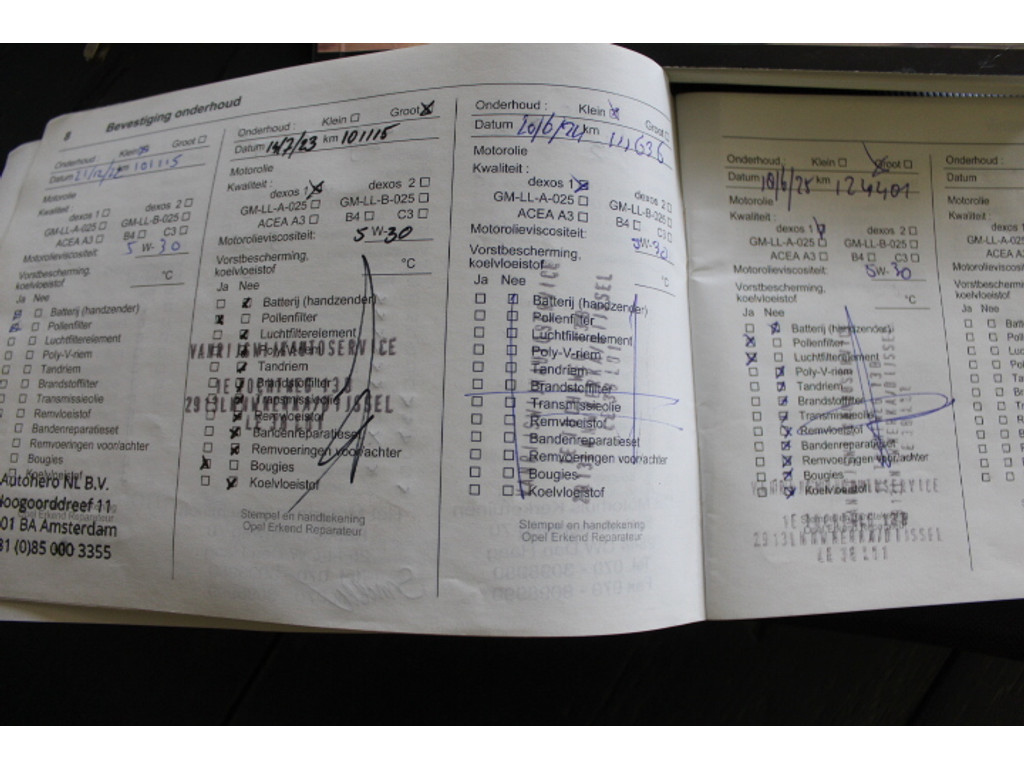 8 Bevestiging onderhoud
Onderhoud : Klein Groot
Datum 21/12/22 km 101115
Motorolie
Kwaliteit :
dexos 1 dexos 2
GM-LL-A-025 GM-LL-B-025
ACEA A3 B4 C3
Motorolieviscositeit: 5 W-30
Vorstbescherming,
koelvloeistof °C
Ja Nee
Batterij (handzender)
Pollenfilter
Luchtfilterelement
Poly-V-riem
Tandriem
Brandstoffilter
Transmissieolie
Remvloeistof
Bandenreparatieset
Remvoeringen voor/achter
Bougies
Koelvloeistof
Autohero NL B.V.
Hoogoorddreef 11
01 BA Amsterdam
31 (0)85 000 3355
Onderhoud : Klein Groot
Datum 14/7/23 km 101115
Motorolie
Kwaliteit :
dexos 1 dexos 2
GM-LL-A-025 GM-LL-B-025
ACEA A3 B4 C3
Motorolieviscositeit: 5 W-30
Vorstbescherming,
koelvloeistof °C
Ja Nee
Batterij (handzender)
Pollenfilter
Luchtfilterelement
Poly-V-riem
Tandriem
Brandstoffilter
Transmissieolie
Remvloeistof
Bandenreparatieset
Remvoeringen voor/achter
Bougies
Koelvloeistof
Stempel en handtekening
Opel Erkend Reparateur
Onderhoud : Klein Groot
Datum 20/6/24 km 111636
Motorolie
Kwaliteit :
dexos 1 dexos 2
GM-LL-A-025 GM-LL-B-025
ACEA A3 B4 C3
Motorolieviscositeit: 5W-30
Vorstbescherming,
koelvloeistof °C
Ja Nee
Batterij (handzender)
Pollenfilter
Luchtfilterelement
Poly-V-riem
Tandriem
Brandstoffilter
Transmissieolie
Remvloeistof
Bandenreparatieset
Remvoeringen voor/achter
Bougies
Koelvloeistof
Stempel en handtekening
Opel Erkend Reparateur
Onderhoud : Klein Groot
Datum 10/6/25 km 124401
Motorolie
Kwaliteit :
dexos 1 dexos 2
GM-LL-A-025 GM-LL-B-025
ACEA A3 B4 C3
Motorolieviscositeit: 5W-30
Vorstbescherming,
koelvloeistof °C
Ja Nee
Batterij (handzender)
Pollenfilter
Luchtfilterelement
Poly-V-riem
Tandriem
Brandstoffilter
Transmissieolie
Remvloeistof
Bandenreparatieset
Remvoeringen voor/achter
Bougies
Koelvloeistof
Onderhoud :
Datum
Motorolie
Kwaliteit :
dexos 1
GM-LL-A-025
ACEA A3
Vorstbescherming,
koelvloeistof
Ja Nee